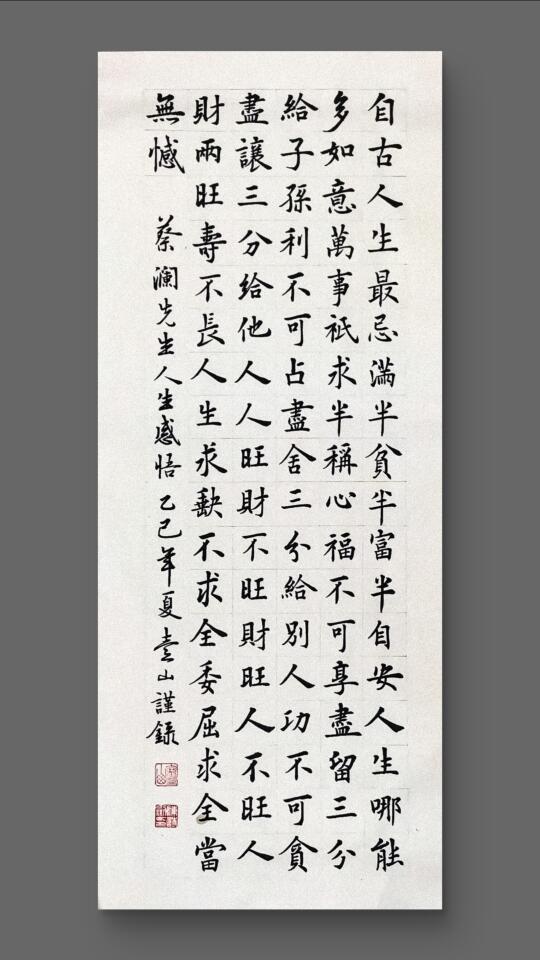 自古人生最忌滿半貧半富半自安人生哪能
多如意萬事祇求半稱心福不可享盡留三分
給子孫利不可占盡舍三分給別人功不可貪
盡讓三分給他人人旺財不旺財旺人不旺人
財兩旺壽不長人生求缺不求全委屈求全當
無憾 蔡澜先生人生感悟 乙巳年夏壹山謹錄